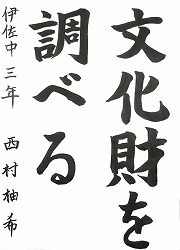 文化財を
調べる
伊佐中三年 西村柚希